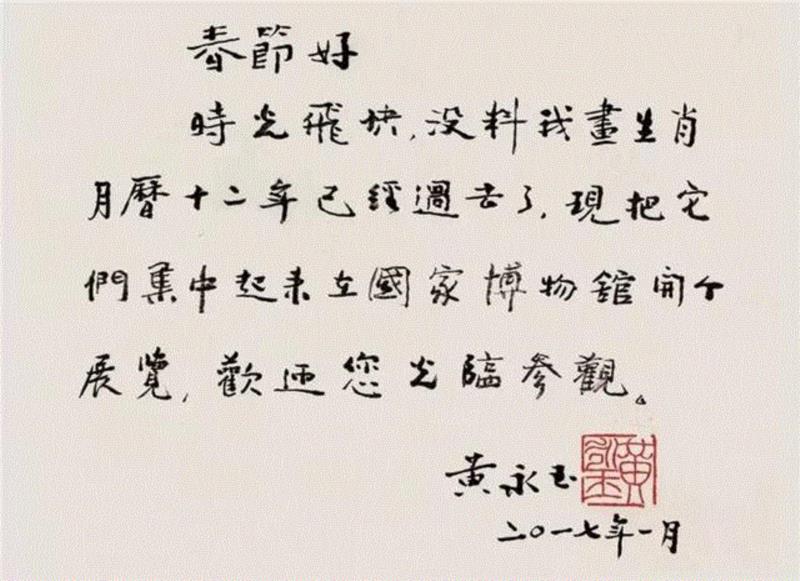 春節好
時光飛快,没料我畫生肖
月曆十二年已經過去了,現把它
們集中起来在國家博物館開个
展覽,歡迎您光臨參觀。
黃永玉
二〇一七年一月